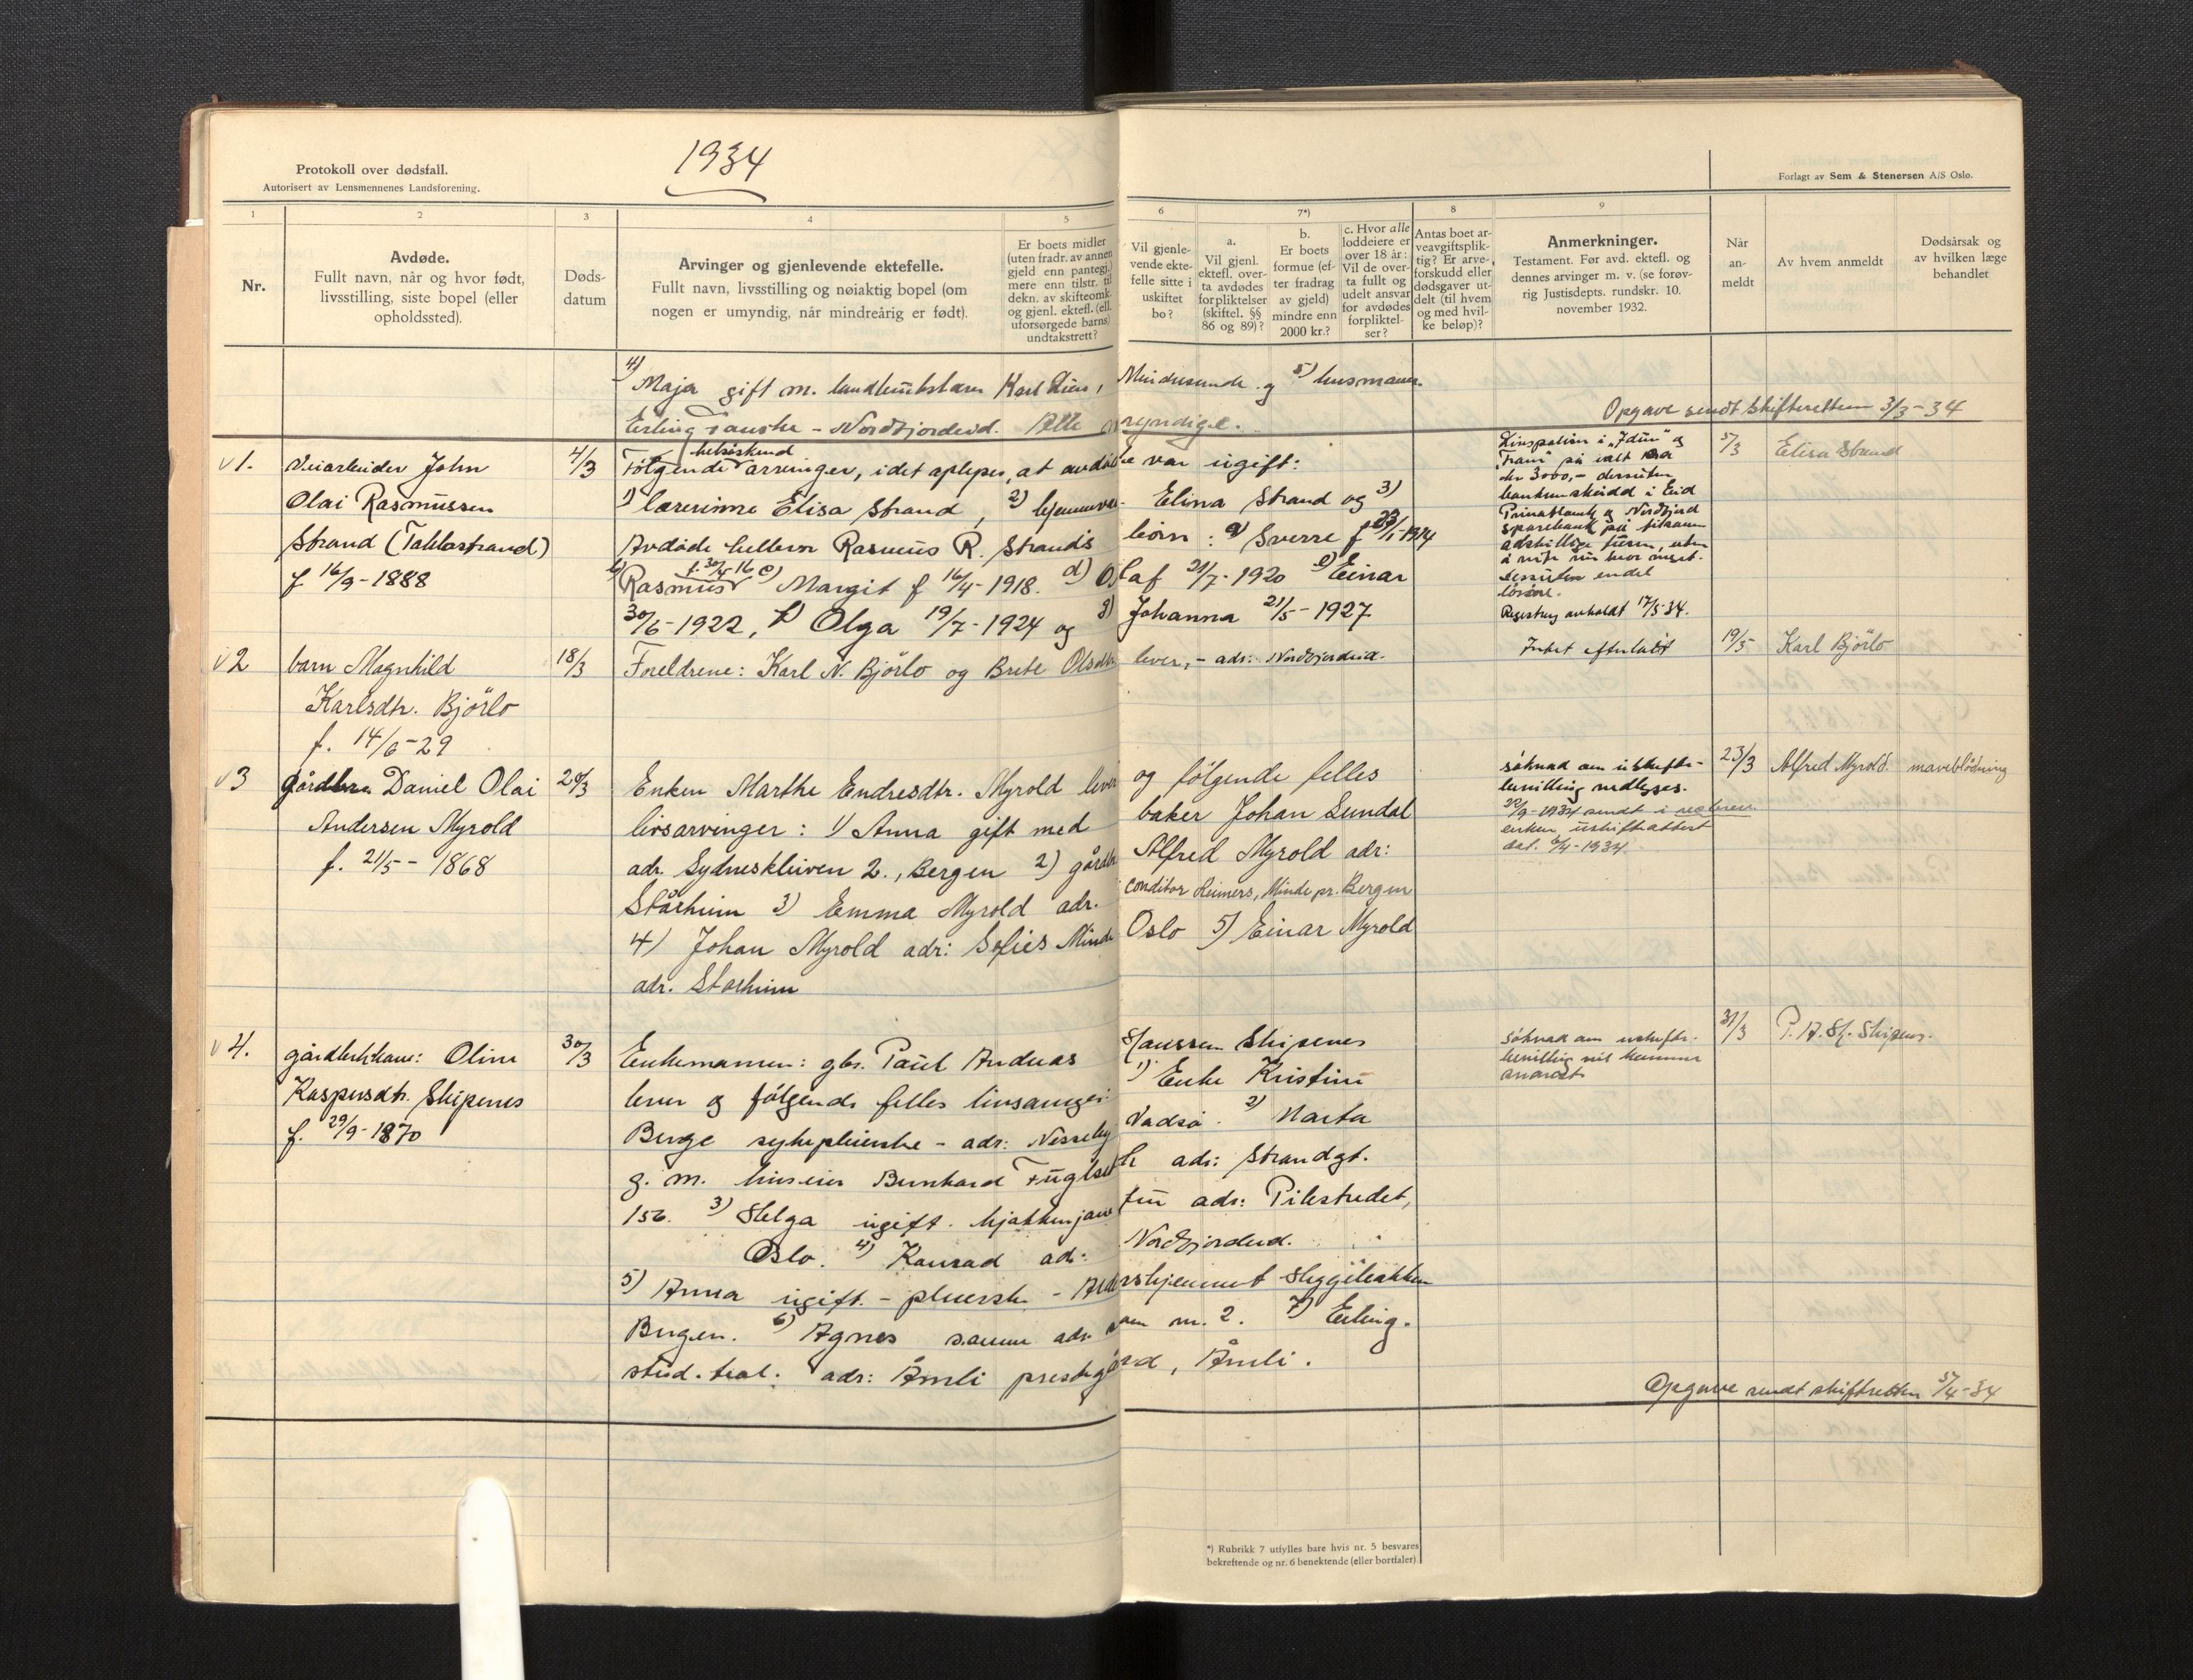 1934
Protokoll over dødsfall.
Autorisert av Lensmennenes Landsforening.
Forlagt av Sem & Stenersen A/S Oslo.
1 2 3 4 5 6 7*) 8 9
Nr.
Avdøde.
Fullt navn, når og hvor født,
livsstilling, siste bopel (eller
opholdssted).
Døds-
datum
Arvinger og gjenlevende ektefelle.
Fullt navn, livsstilling og nøiaktig bopel (om
nogen er umyndig, når mindreårig er født).
Er boets midler
(uten fradr. av annen
gjeld enn pantegj.)
mere enn tilstr. til
dekn. av skifteomk.
og gjenl. ektefl. (ell.
uforsørgede barns)
undtakstrett?
Vil gjenle-
vende ekte-
felle sitte i
uskiftet
bo?
a.
Vil gjenl.
ektefl. over-
ta avdødes
forpliktelser
(skiftel. §§
86 og 89)?
b.
Er boets
formue (ef-
ter fradrag
av gjeld)
mindre enn
2000 kr.?
c. Hvor alle
loddeiere er
over 18 år:
Vil de over-
ta fullt og
udelt ansvar
for avdødes
forpliktel-
ser?
Antas boet ar-
veavgiftsplik-
tig? Er arve-
forskudd eller
dødsgaver ut-
delt (til hvem
og med hvil-
ke beløp)?
Anmerkninger.
Testament. Før avd. ektefl. og
dennes arvinger m. v. (se forøv-
rig Justisdepts. rundskr. 10.
november 1932.
Når
an-
meldt
Av hvem anmeldt
Dødsårsak og
av hvilken læge
behandlet
4) Maja gift m. Karl og 5)
Erling - Nordfjordeid. Alle myndige.
Opgave sendt skifteretten 3/3-34
1. Veiarbeider John
Olai Rasmussen
Strand (Taklostrand)
f 16/9-1888
4/3
Følgende helsøskend arvinger, idet oplyses, at avdøde var ugift:
1) lærerinne Elisa Strand, 2) Elina Strand og 3)
Avdøde Rasmus R. Strands barn: a) Sverre f 23/1-1914
b) Rasmus f. 30/4 16 c) Margit f 16/4-1918. d) Olaf 21/7-1920 e) Einar
30/6-1922, f) Olga 19/7-1924 og g) Johanna 21/5-1927
i "Idun" og
på ialt
kr 3000,- dessuten
i Eid
Privatbank og Nordfjord
sparebank på
uten
dessuten endel
løsøre.
avholdt 17/5-34.
5/3
Elisa Strand
2 barn Magnhild
Karlsdtr. Bjørlo
f. 14/6-29
18/3
Foreldrene: Karl N. Bjørlo og Brite Olsdtr lever, - adr: Nordfjordeid.
Intet efterlatt
19/3
Karl Bjørlo
3 gårdbr. Daniel Olai
Andersen Myrold
f. 21/5-1868
20/3
Enken Marthe Endresdtr. Myrold lever og følgende felles
livsarvinger: 1) Anna gift med baker Johan Lundal
adr. Sydneskleiven 2., Bergen 2) gårdbr Alfred Myrold adr:
Stårheim 3) Emma Myrold adr. conditor Reimers, Minde pr. Bergen
4) Johan Myrold adr: Sofies Minde Oslo 5) Einar Myrold
adr. Stårheim
søknad om uskifte-
bevilling vedlegges.
1934 sendt i
enken, uskifteattest
dat. 1934.
23/3
Alfred Myrold.
maveblødning
4. gårdbrukerhane: Oline
Kaspersdtr. Skipenes
f. 29/9-1870
30/3
Enkemannen: gbr. Paul Andreas Hanssen Skipenes
lever og følgende felles livsarvinger: 1) Enke Kristine
Berge sykepleierske - adr: Nesseby Vadsø. 2) Marta
g. m. Bernhard adr: Strandgt.
156. 3) Helga ugift. adr: Pilestredet,
Oslo. 4) Konrad adr: Nordfjordeid.
5) Anna ugift. - pleierske -
Bergen. 6) Agnes samme adr. som nr. 2. 7) Erling.
stud. teol. adr: Åmli prestegård, Åmli.
søknad om uskifte-
bevilling vil komme
31/3
P. A. H. Skipenes.
Opgave sendt skifteretten 5/4-34
*) Rubrikk 7 utfylles bare hvis nr. 5 besvares
bekreftende og nr. 6 benektende (eller bortfaler)